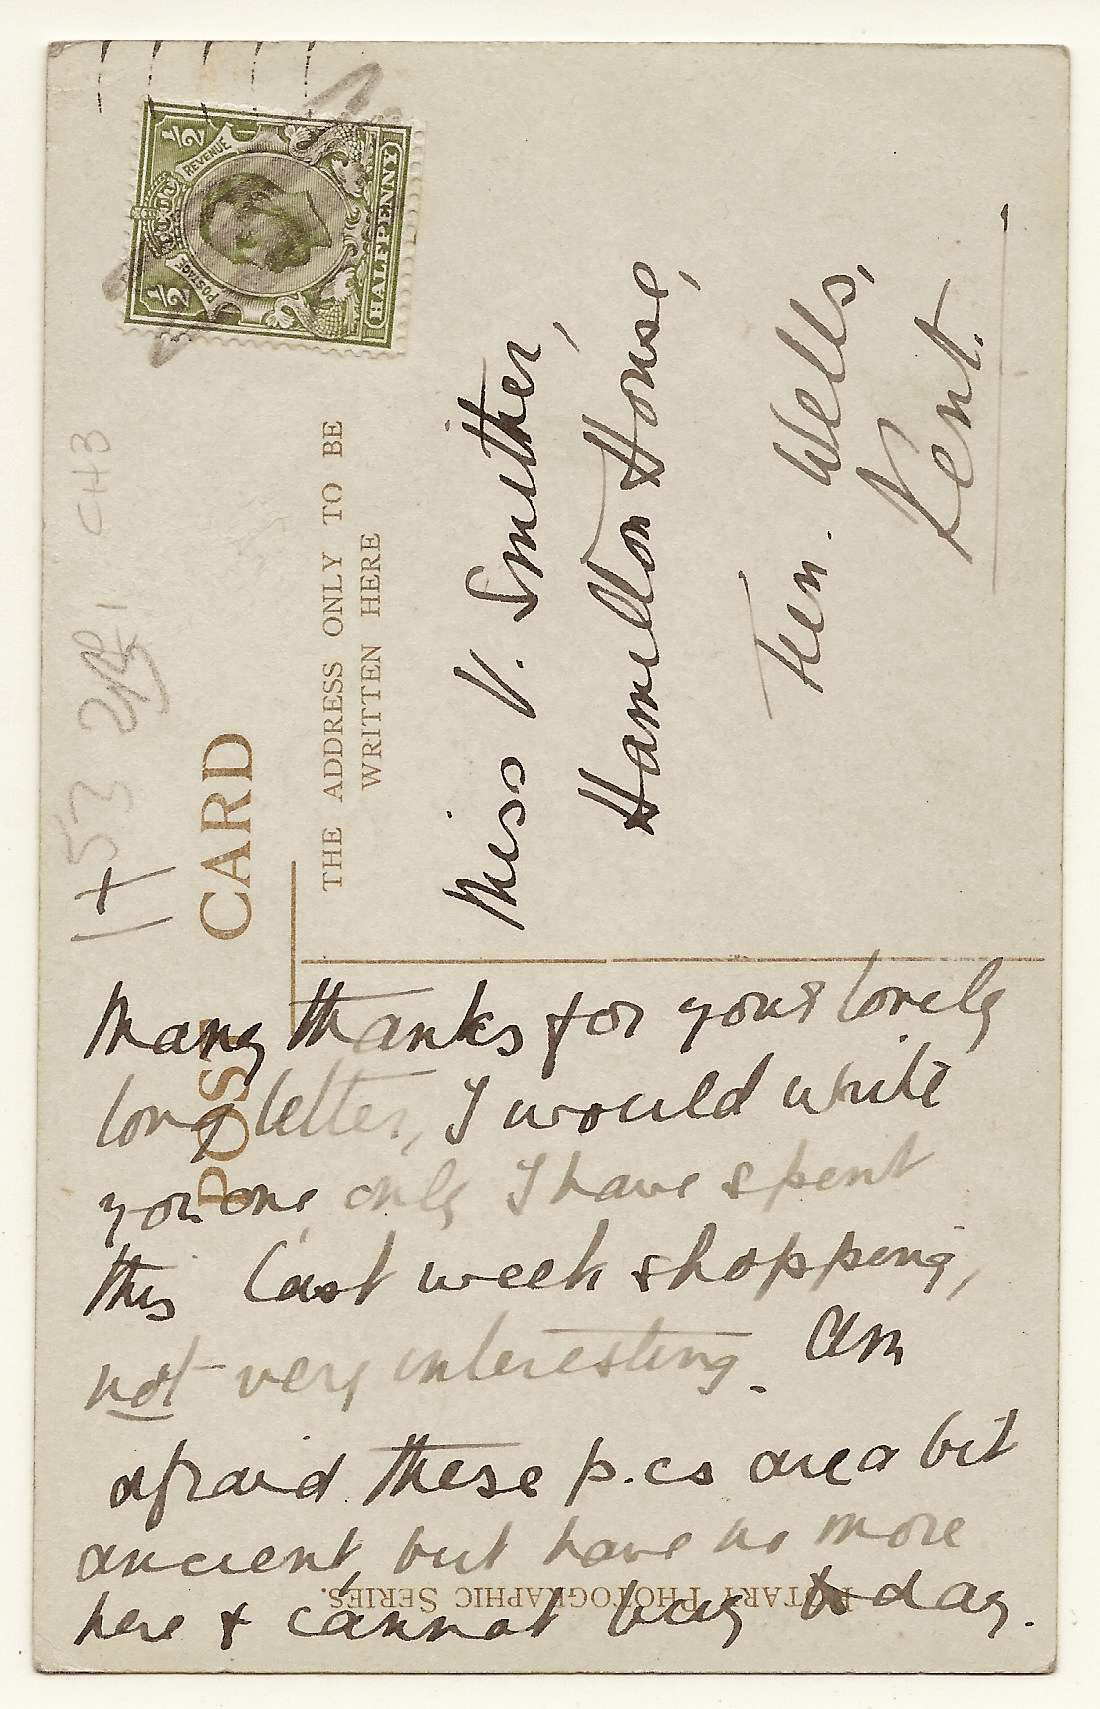 POST CARD
THE ADDRESS ONLY TO BE
WRITTEN HERE
½ ½
POSTAGE REVENUE
HALFPENNY
Miss V. Smither,
Hamilton House,
Tun. Wells,
Kent.
Many thanks for your lovely
long letter, I would write
you one only I have spent
this last week shopping,
not very interesting. Am
afraid these p.cs are a bit
ancient, but have no more
here & cannot buy to day.
ROTARY PHOTOGRAPHIC SERIES.
CH3